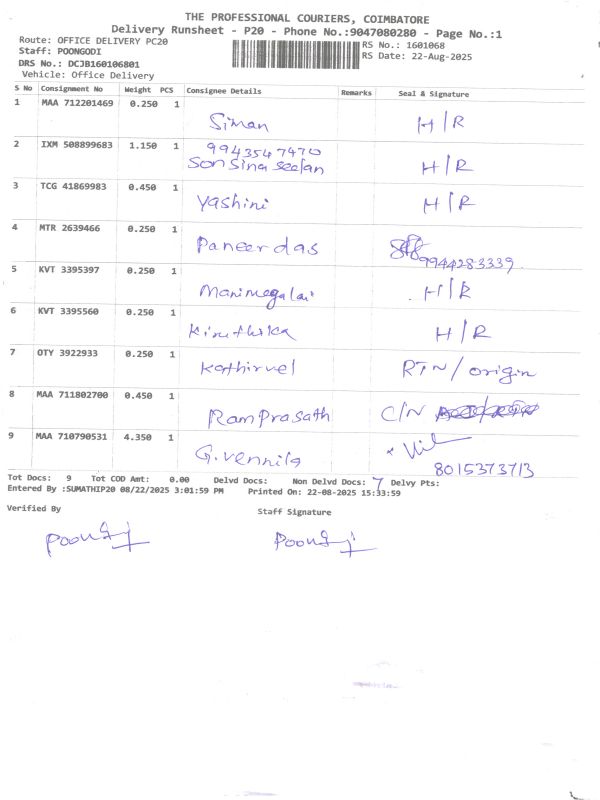 THE PROFESSIONAL COURIERS, COIMBATORE
Delivery Runsheet - P20 - Phone No.:9047080280 - Page No.:1
Route: OFFICE DELIVERY PC20
RS No.: 1601068
Staff: POONGODI
RS Date: 22-Aug-2025
DRS No.: DCJB160106801
Vehicle: Office Delivery
S No Consignment No Weight PCS Consignee Details Remarks Seal & Signature
1 MAA 712201469 0.250 1 Siman H/R
2 IXM 508899683 1.150 1 9943547470
Sonsina Seelan H/R
3 TCG 41869983 0.450 1 Yashini H/R
4 MTR 2639466 0.250 1 Paneerdas 9944283339
5 KVT 3395397 0.250 1 Manimegalai H/R
6 KVT 3395560 0.250 1 Kiruthika H/R
7 OTY 3922933 0.250 1 Kathirvel RTN/origin
8 MAA 711802700 0.450 1 RamPrasath C/N
9 MAA 710790531 4.350 1 G.vennila
8015373713
Tot Docs: 9 Tot COD Amt: 0.00 Delvd Docs: Non Delvd Docs: 7 Delvy Pts:
Entered By :SUMATHIP20 08/22/2025 3:01:59 PM Printed On: 22-08-2025 15:33:59
Verified By Staff Signature